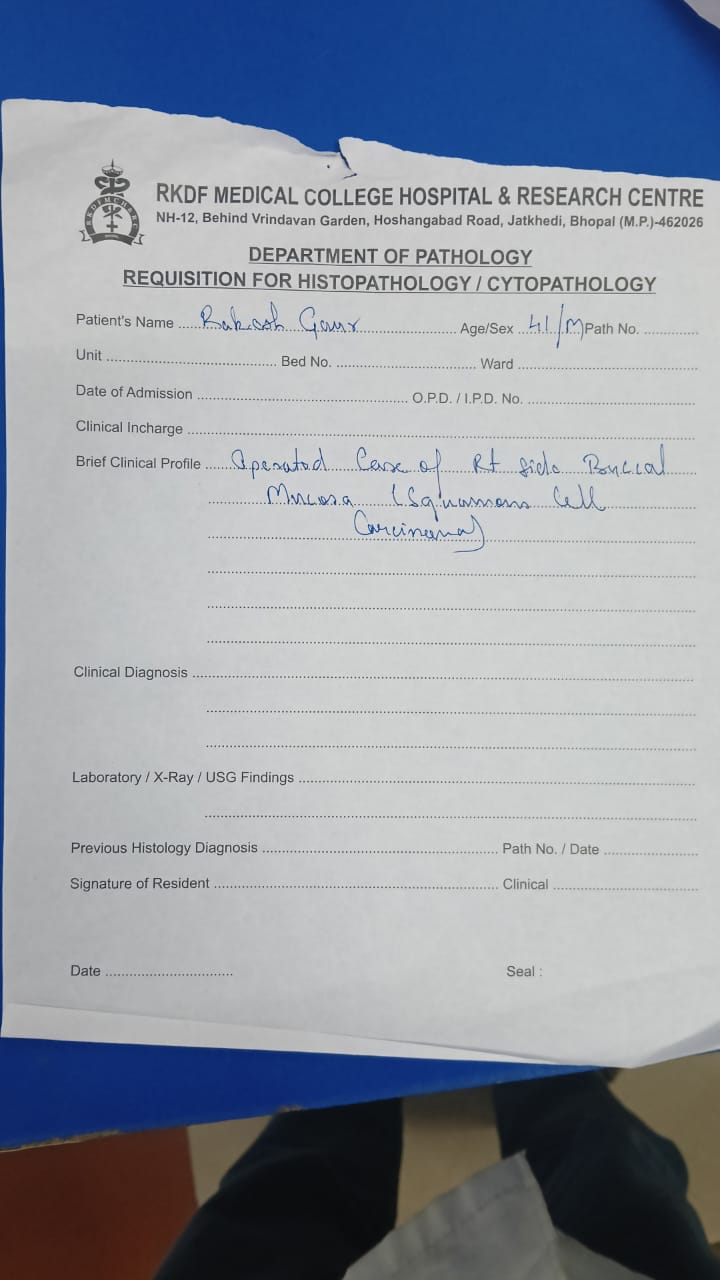 RKDF MEDICAL COLLEGE HOSPITAL & RESEARCH CENTRE
NH-12, Behind Vrindavan Garden, Hoshangabad Road, Jatkhedi, Bhopal (M.P.)-462026
DEPARTMENT OF PATHOLOGY
REQUISITION FOR HISTOPATHOLOGY / CYTOPATHOLOGY
Patient's Name ..... Gour ..... Age/Sex 41/M Path No. .....
Unit ..... Bed No. ..... Ward .....
Date of Admission ..... O.P.D. / I.P.D. No. .....
Clinical Incharge .....
Brief Clinical Profile ..... Operated Case of Rt side Buccal
Mucosa (Squamous Cell
Carcinoma)
Clinical Diagnosis .....
Laboratory / X-Ray / USG Findings .....
Previous Histology Diagnosis ..... Path No. / Date .....
Signature of Resident ..... Clinical .....
Date ..... Seal :